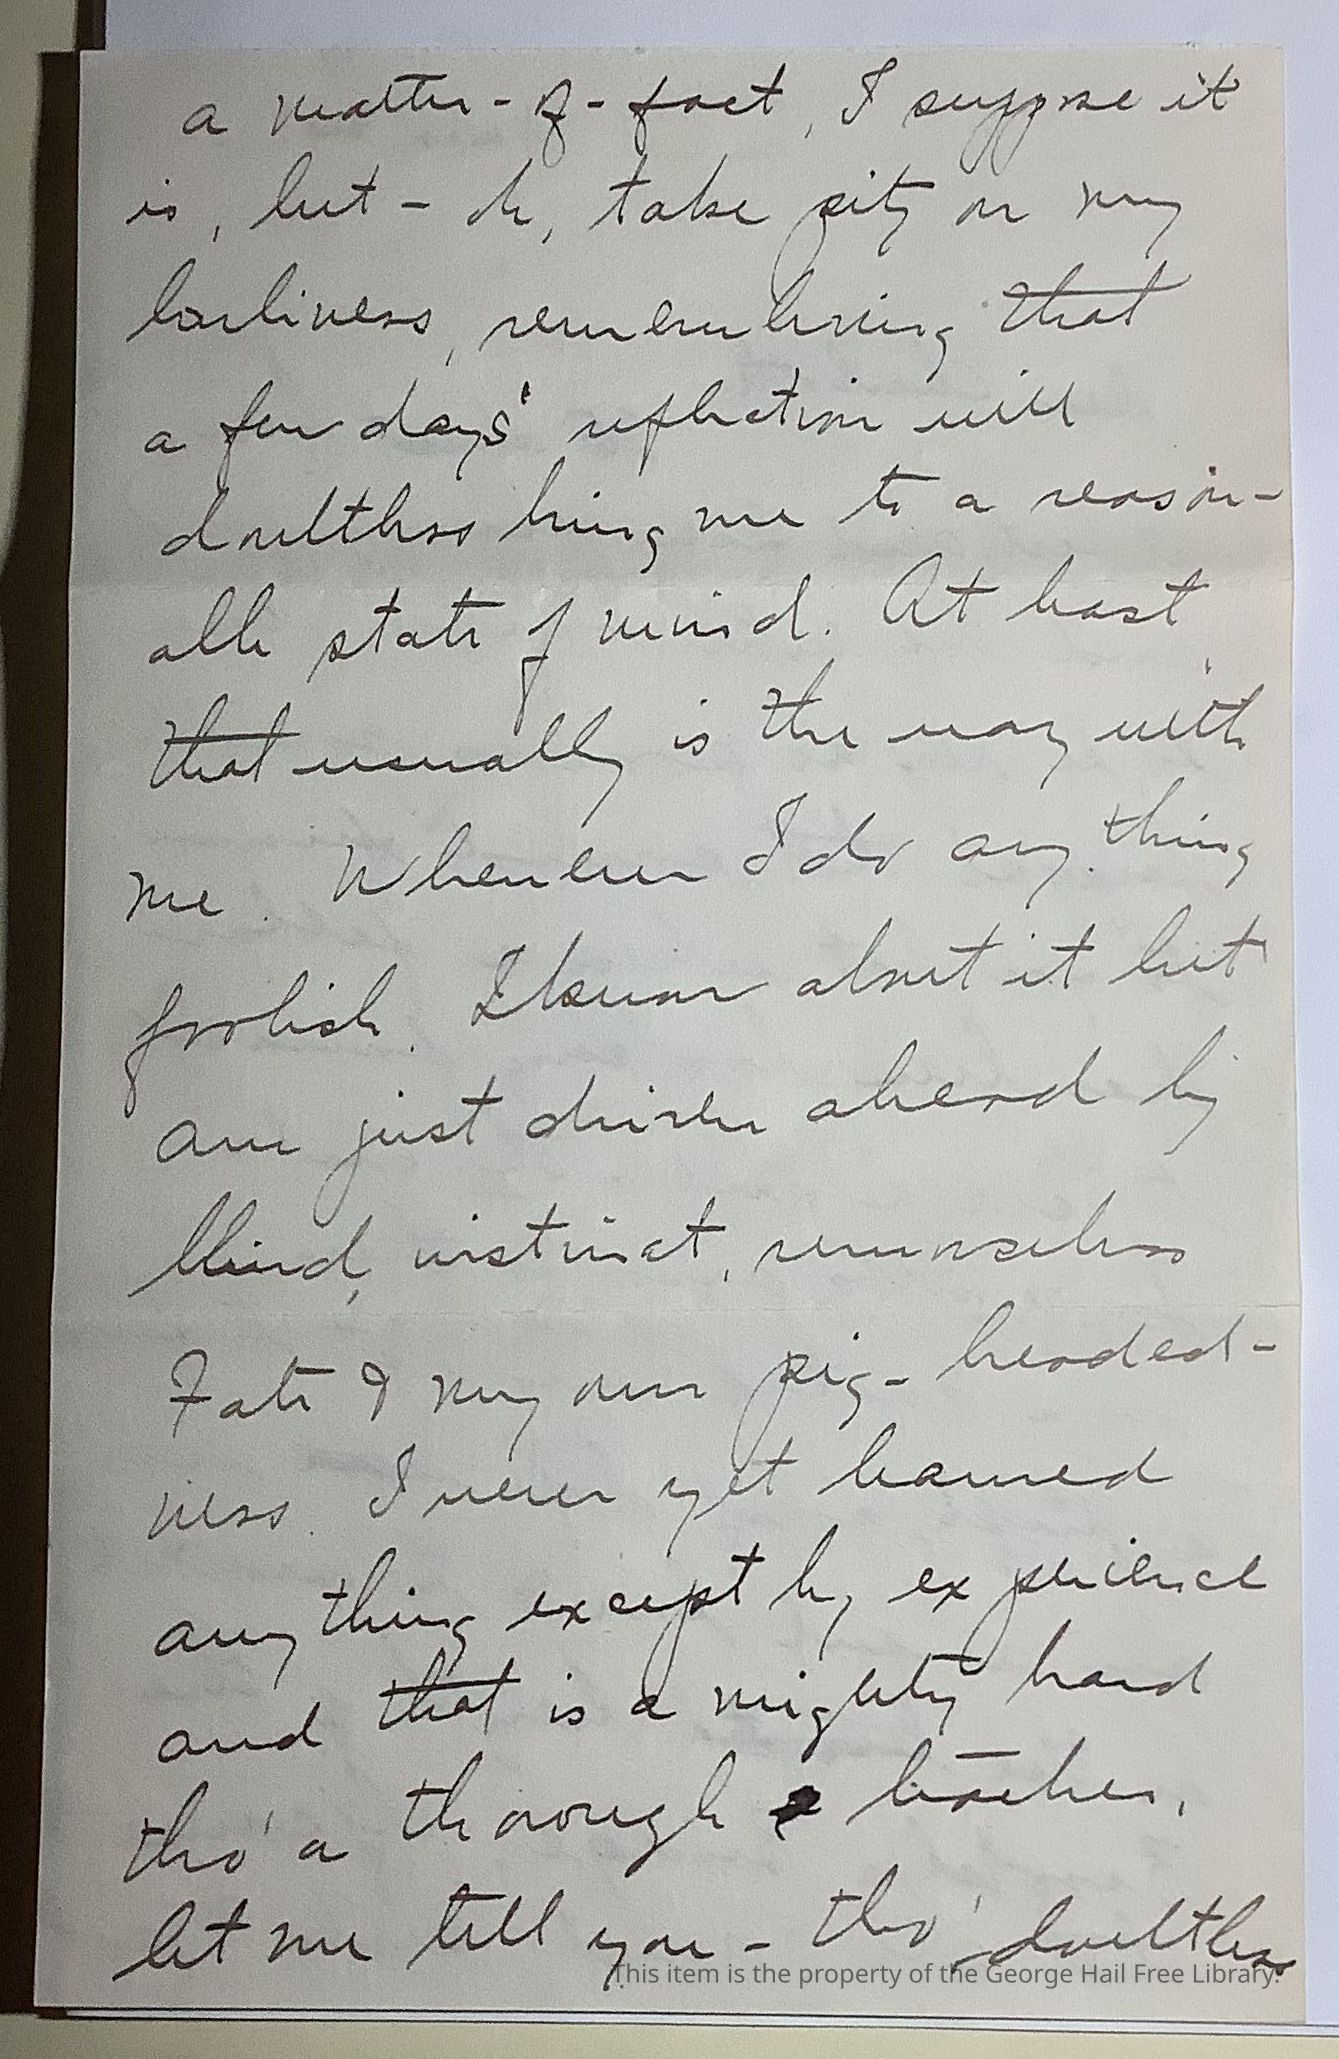 a matter-of-fact, I suppose it
is, but - oh, take pity on my
lonliness, remembering that
a few days' reflection will
doubtless bring me to a reason-
able state of mind. At least
that usually is the way with
me. Whenever I do anything
foolish. I know about it but
am just driven ahead by
blind, instinct, remorseless
Fate & my own pig-headed-
ness. I never yet learned
anything except by experience
and that is a mighty hard
tho' a thorough teacher,
let me tell you - tho' doubtless
This item is the property of the George Hail Free Library.